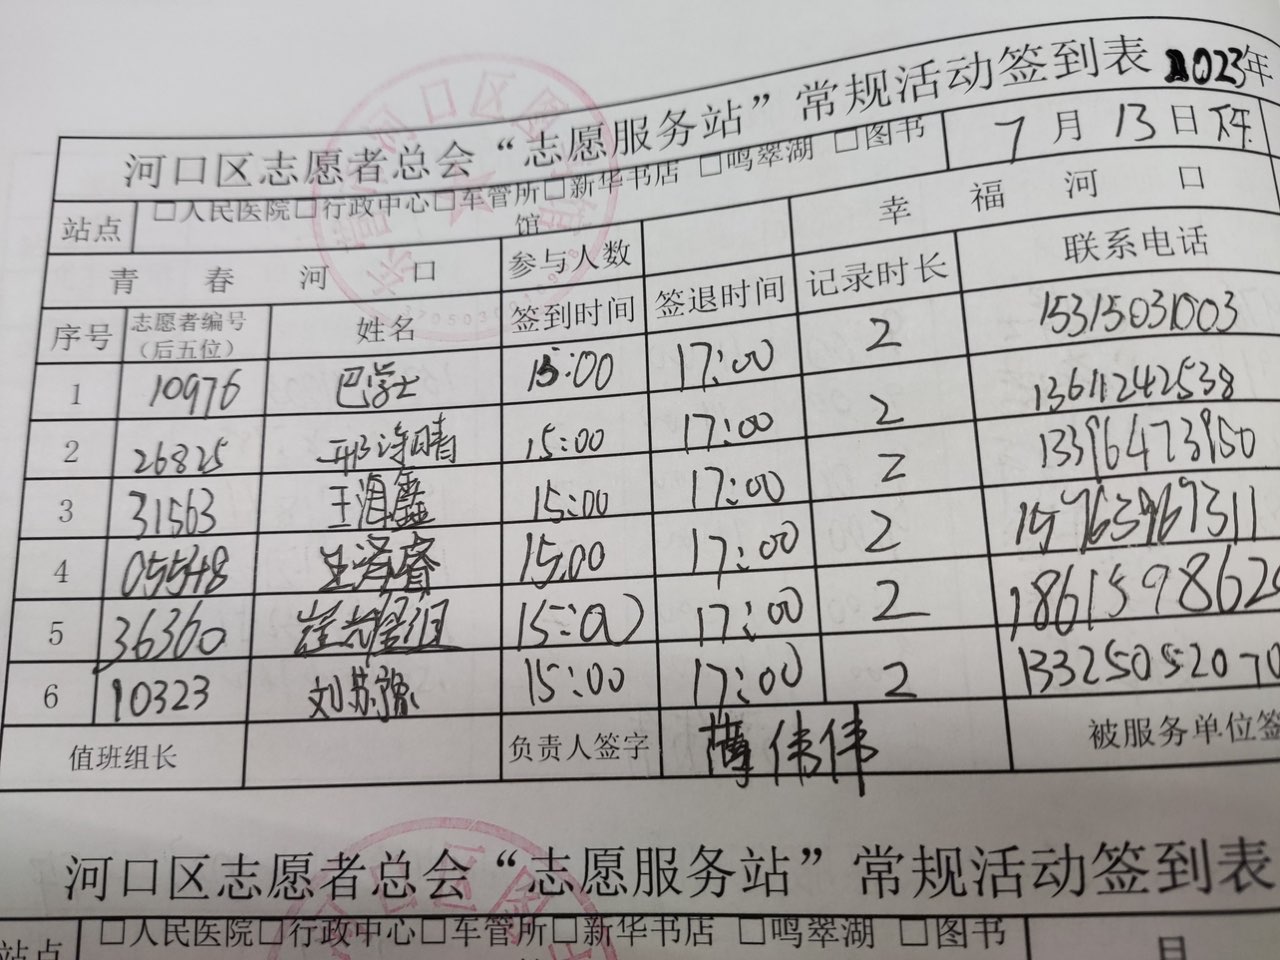 河口区志愿者总会“志愿服务站”常规活动签到表 2023年
站点 □人民医院□行政中心□车管所□新华书店 □鸣翠湖 □图书馆 7 月 13 日
青 春 河 口 参与人数 幸 福 河 口
序号 志愿者编号（后五位） 姓名 签到时间 签退时间 记录时长 联系电话
1 10976 巴学士 15:00 17:00 2 15315031003
2 26825 邢诗晴 15:00 17:00 2 13611242538
3 31563 王洎鑫 15:00 17:00 2 13396473950
4 05548 王泽睿 15:00 17:00 2 15763969311
5 36360 15:00 17:00 2 186159862
6 10323 刘苏豫 15:00 17:00 2 1332505207
值班组长 负责人签字 薄伟伟 被服务单位签
河口区志愿者总会“志愿服务站”常规活动签到表
站点 □人民医院□行政中心□车管所□新华书店 □鸣翠湖 □图书
月